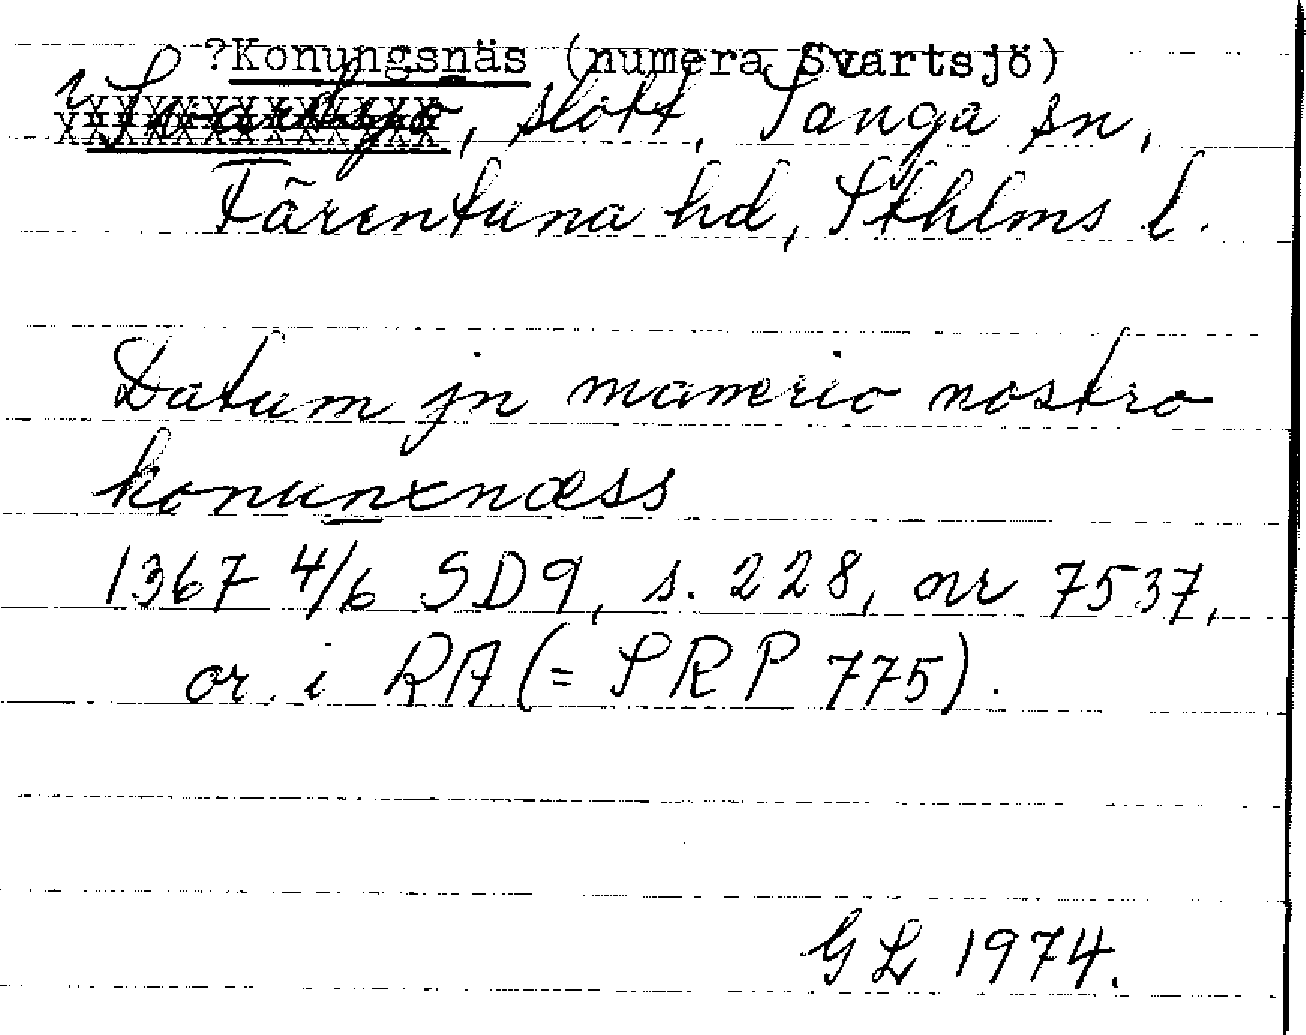 ?Konungsnäs (numera Svartsjö)
? Svartsjö, slott, Sånga sn,
Färentuna hd, Sthlms l.
Datum jn manerio nostro
konunxnæss
1367 4/6 SD9, s. 228, nr 7537,
or. i RA (= SRP 775).
GL 1974.